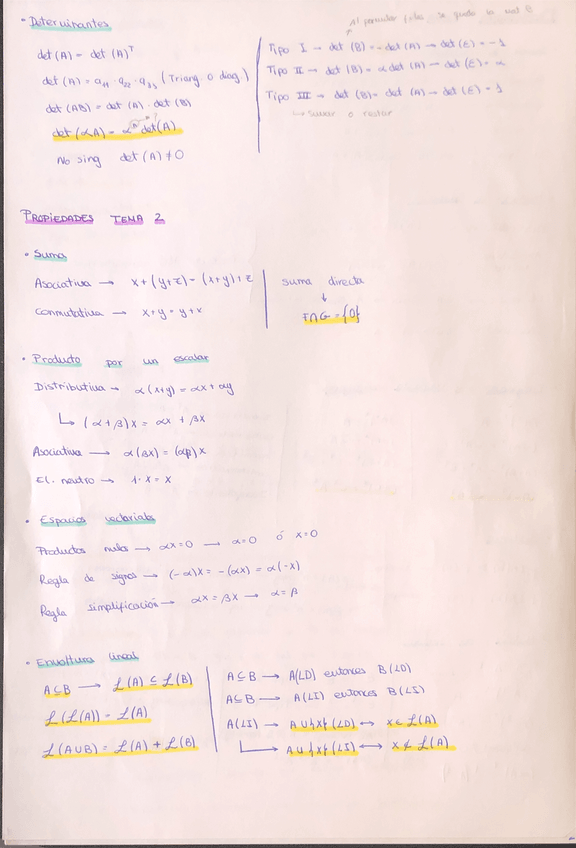 • Determinantes
det (A) = det (A)ᵀ
det (A) = a₁₁ · a₂₂ · a₃₃ (Triang. o diag.)
det (AB) = det (A) · det (B)
det (αA) = αⁿ det(A)
No sing det (A) ≠ 0
Al permutar filas se queda la mat E
Tipo I → det (B) = - det (A) → det (E) = -1
Tipo II → det (B) = α det (A) → det (E) = α
Tipo III → det (B) = det (A) → det (E) = 1
↳ Sumar o restar
PROPIEDADES TEMA 2
• Suma
Asociativa → x + (y+z) = (x+y) + z
Conmutativa → x+y = y+x
suma directa
↓
F∩G = {0}
• Producto por un escalar
Distributiva → α(x+y) = αx + αy
↳ (α+β)x = αx + βx
Asociativa → α(βx) = (αβ)x
El. neutro → 1·x = x
• Espacios vectoriales
Productos nulos → αx=0 → α=0 ó x=0
Regla de signos → (-α)x = -(αx) = α(-x)
Regla simplificación → αx = βx → α = β
• Envoltura lineal
A⊆B → ℒ(A) ⊆ ℒ(B)
ℒ(ℒ(A)) = ℒ(A)
ℒ(A∪B) = ℒ(A) + ℒ(B)
A⊆B → A(LD) entonces B(LD)
A⊆B → A(LI) entonces B(LI)
A(LI) → A∪{x} (LD) ↔ x∈ℒ(A)
↳ A∪{x} (LI) ↔ x∉ℒ(A)